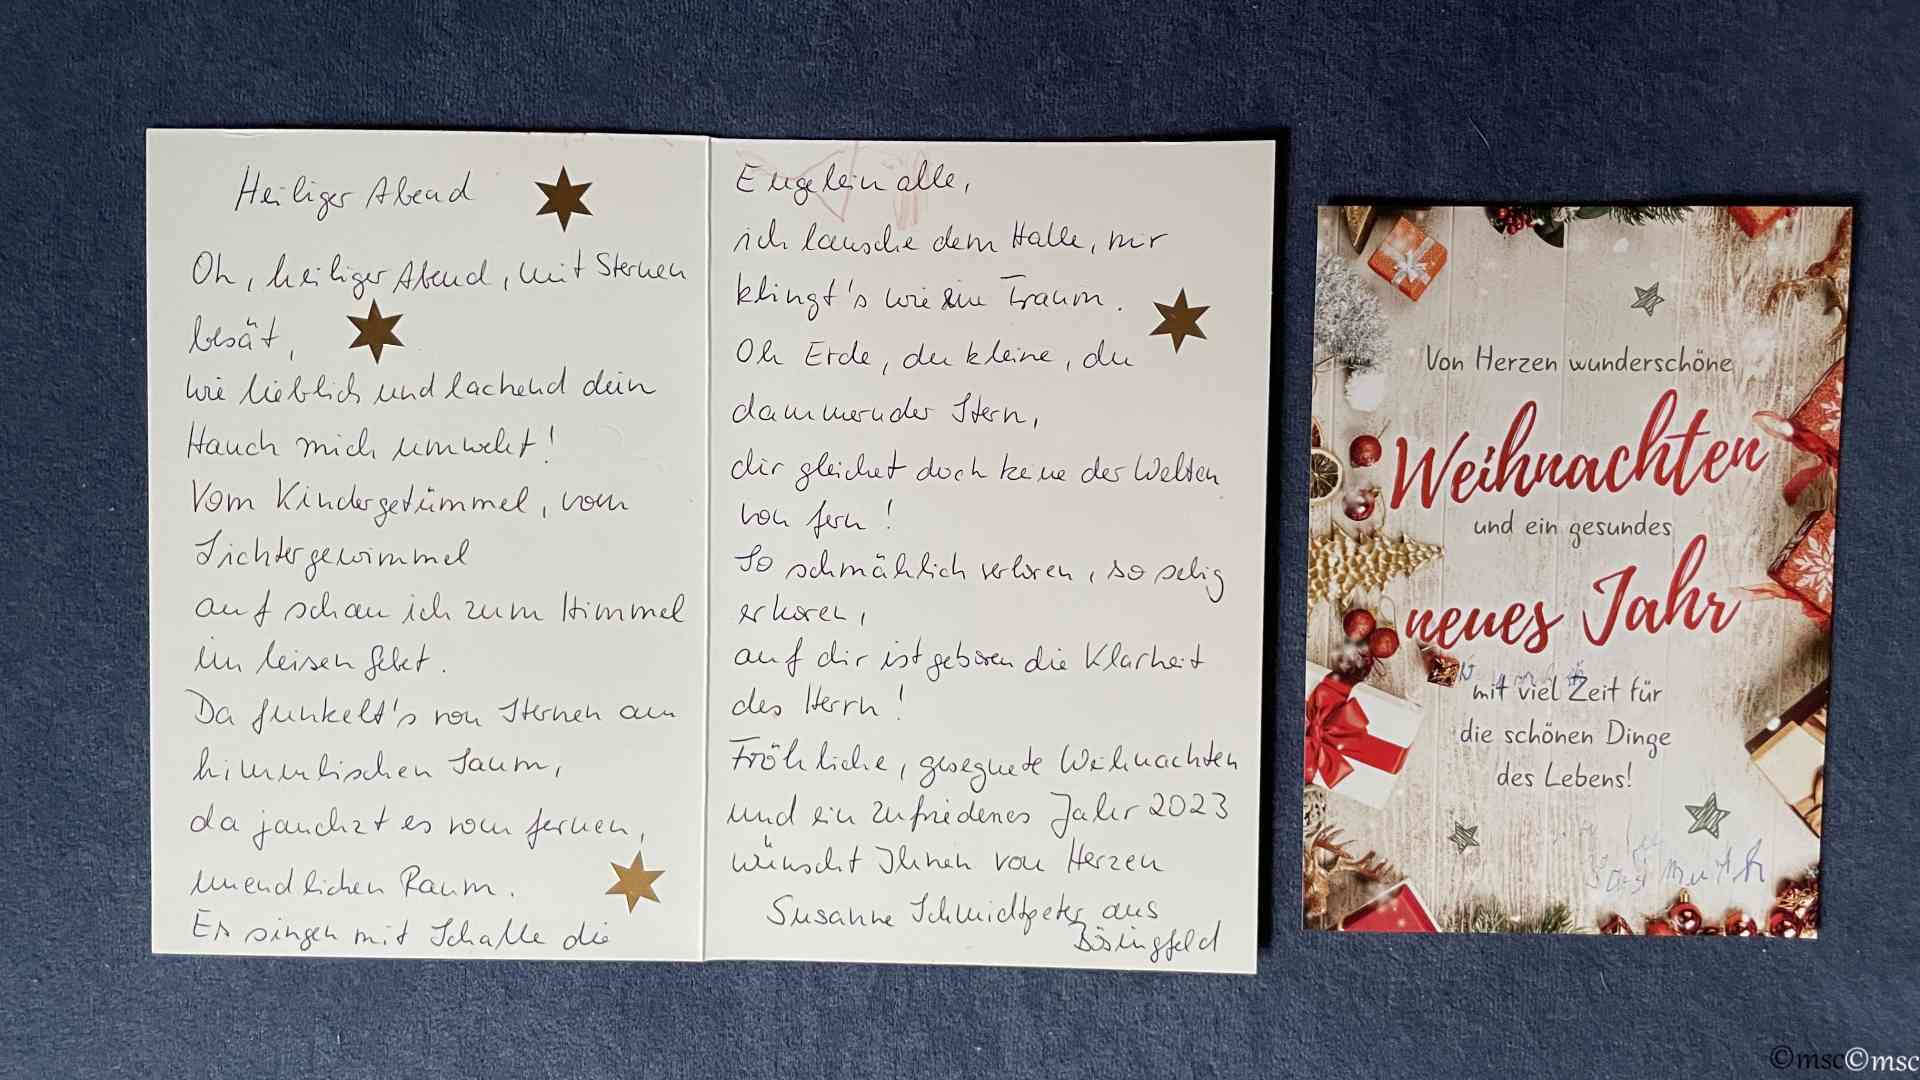 Heiliger Abend
Oh, heiliger Abend, mit Sternen
besät,
wie lieblich und lachend dein
Hauch mich umweht!
Vom Kindergetümmel, vom
Lichtergewimmel
auf schau ich zum Himmel
im leisen Gebet.
Da funkelt's von Sternen am
himmlischen Saum,
da jauchzt es vom fernen,
unendlichen Raum.
Es singen mit Schalle die
Engelein alle,
ich lausche dem Halle, mir
klingt's wie ein Traum.
Oh Erde, du kleine, du
dämmernder Stern,
dir gleichet doch keine der Welten
von fern!
So schmählich verloren, so selig
erkoren,
auf dir ist geboren die Klarheit
des Herrn!
Fröhliche, gesegnete Weihnachten
und ein zufriedenes Jahr 2023
wünscht Ihnen von Herzen
Susanne Schmidtpeter aus
Bösingfeld
Von Herzen wunderschöne
Weihnachten
und ein gesundes
neues Jahr
mit viel Zeit für
die schönen Dinge
des Lebens!
©msc©msc